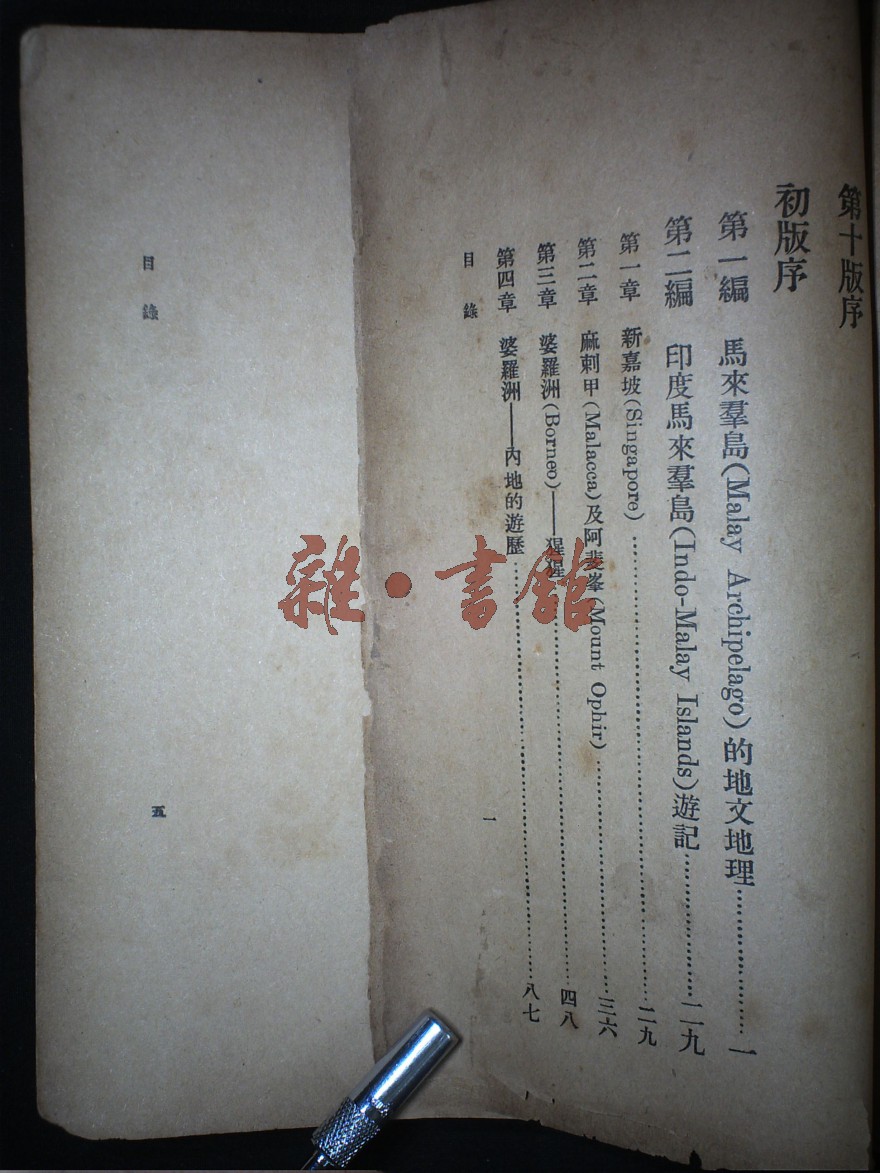 第十版序
初版序
第一編　馬來羣島(Malay Archipelago)的地文地理…………………一
第二編　印度馬來羣島(Indo-Malay Islands)遊記…………………二九
第一章　新嘉坡(Singapore)…………………二九
第二章　麻剌甲(Malacca)及阿斐峯(Mount Ophir)…………………三六
第三章　婆羅洲(Borneo)——猩猩…………………四八
第四章　婆羅洲——內地的遊歷…………………八七
目錄
一
目錄
五
雜·書館